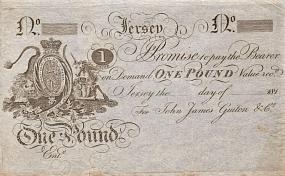 No. Jersey No.
1
I Promise to pay the Bearer
on Demand ONE POUND Value recd.
Jersey the day of 181
For John James Guiton & Co.
One Pound
Entd.